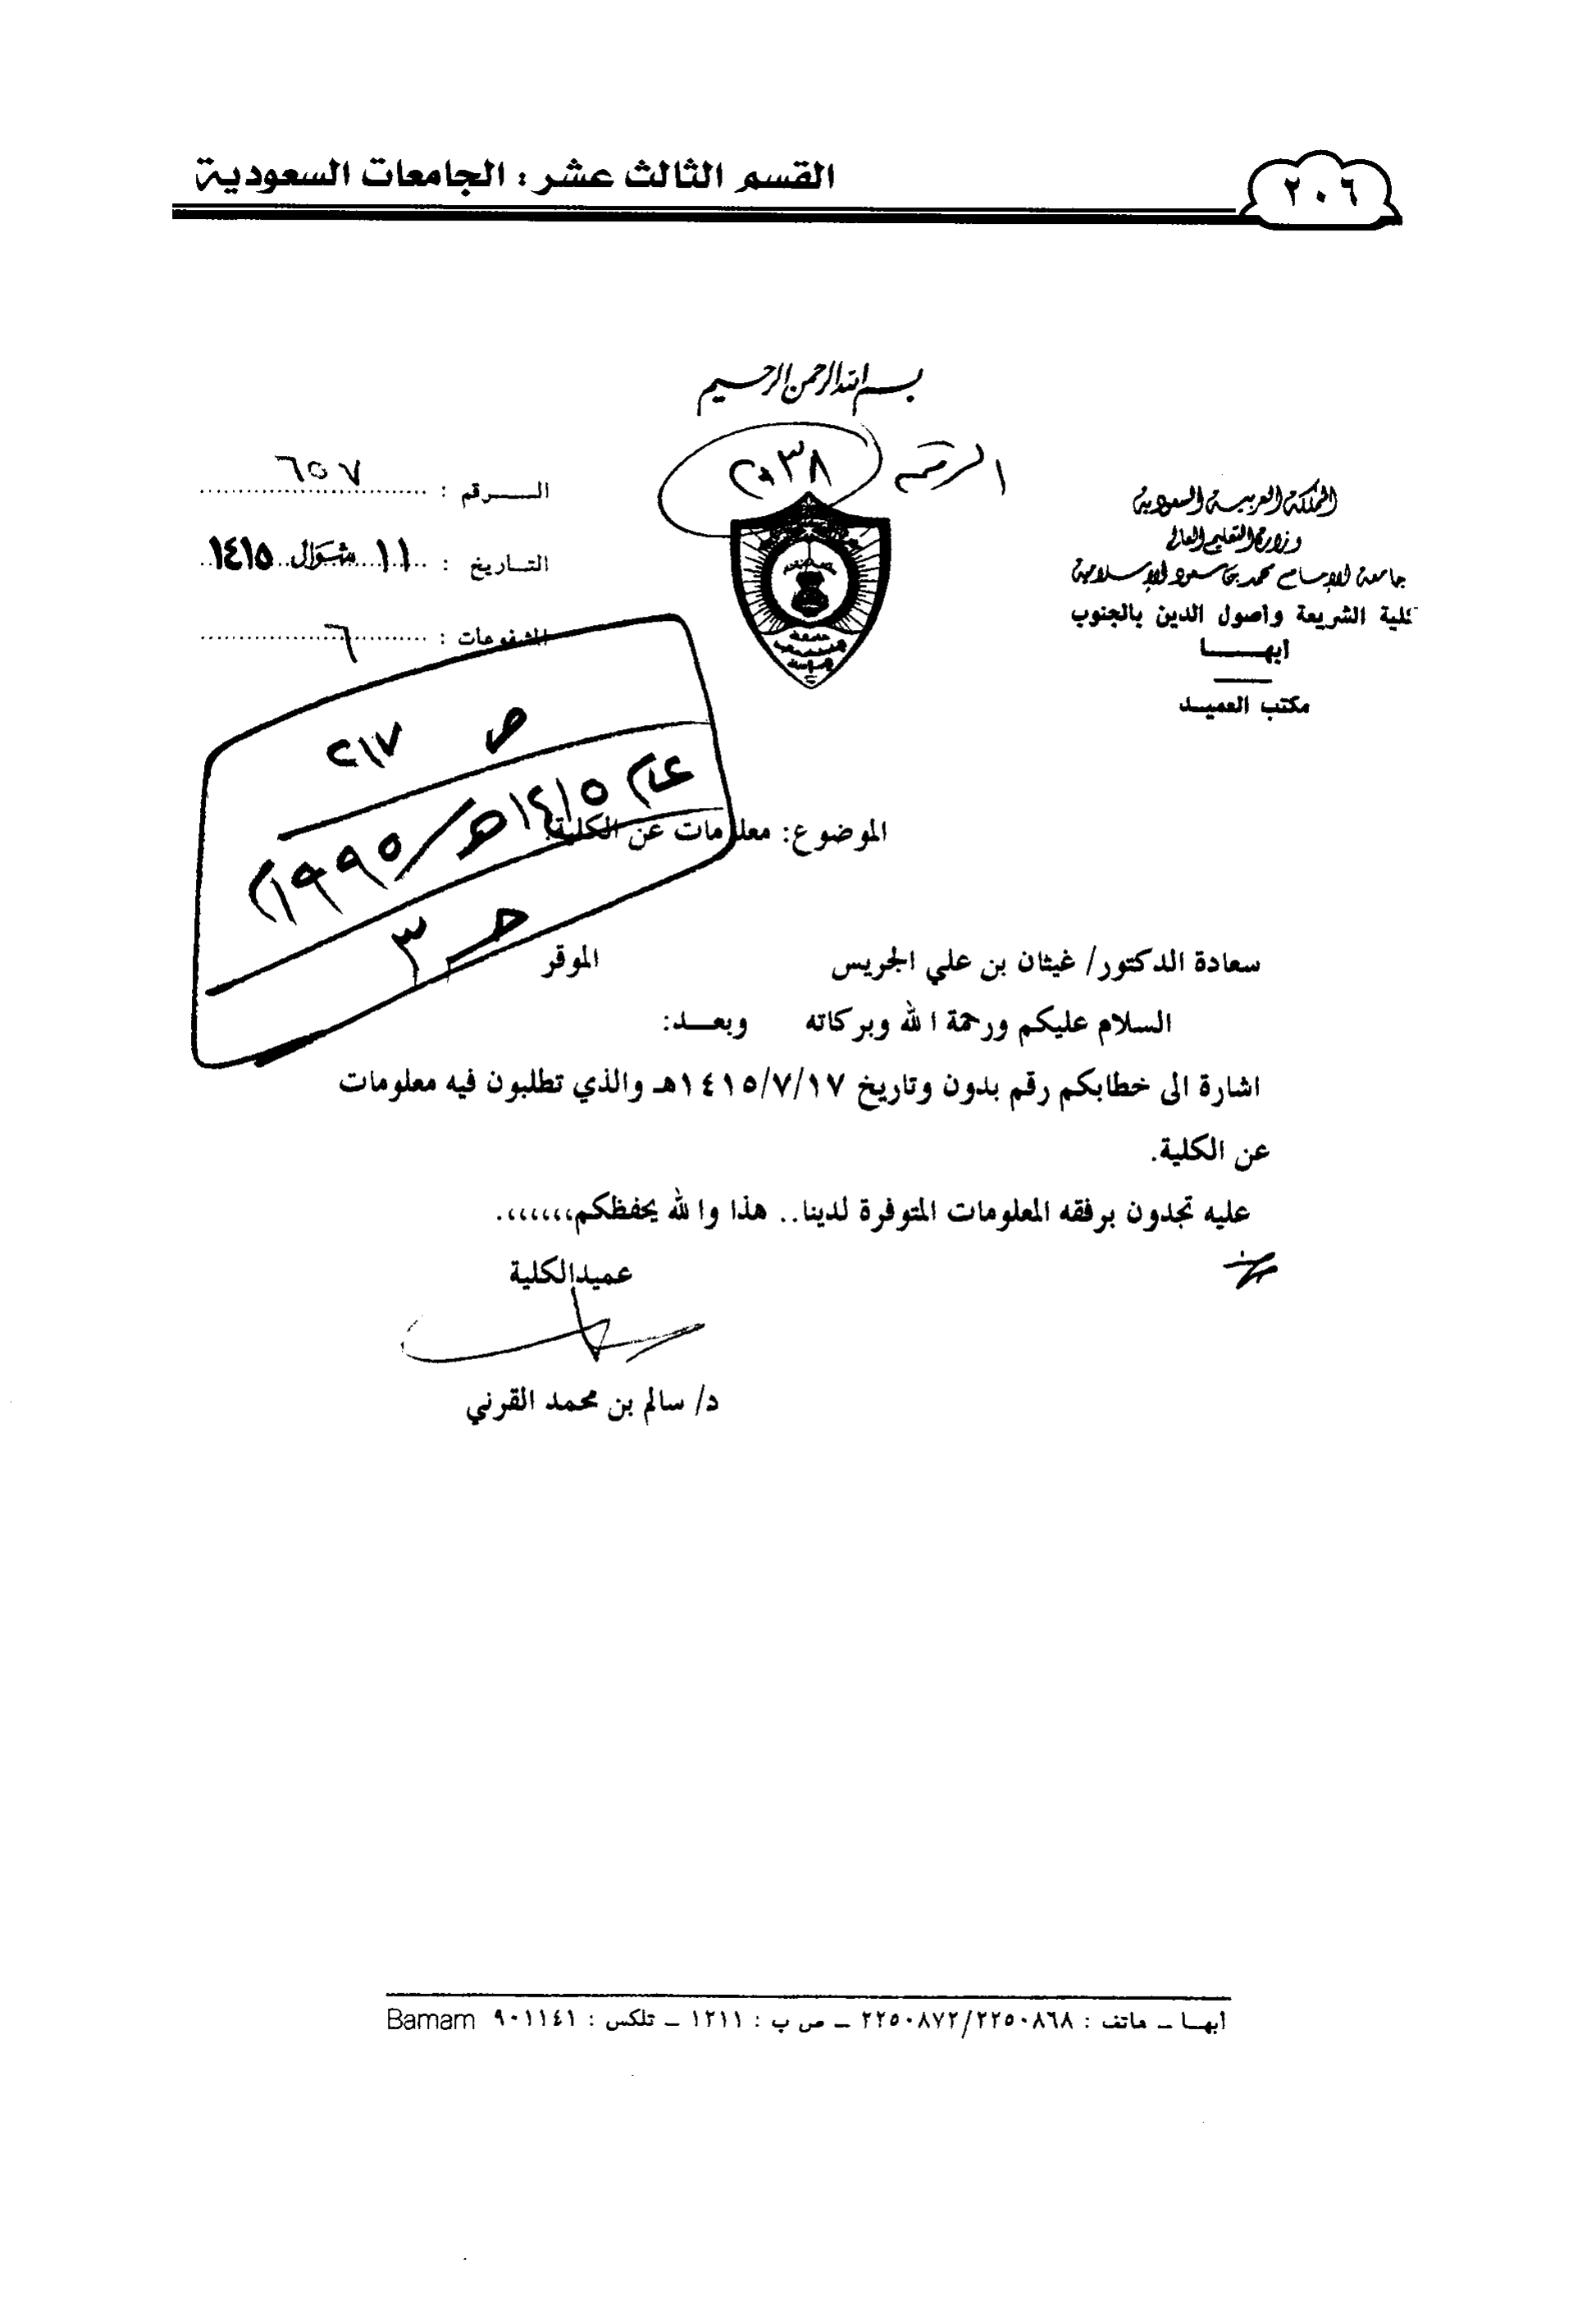 القسم الثالث عشر : الجامعات السعودية
٢٠٦
بسم الله الرحمن الرحيم
الرقم ٢٠٣٨
المملكة العربية السعودية
وزارة التعليم العالي
جامعة الإمام محمد بن سعود الإسلامية
كلية الشريعة واصول الدين بالجنوب
أبهـــا
مكتب العميـد
الـــرقم : ٦٥٧
التـاريخ : ١١ شوال ١٤١٥
المشفوعات : ٦
ص ٢١٧
عام ١٤١٥هـ/١٩٩٥م
حـ ٣
الموضوع: معلومات عن الكلية.
سعادة الدكتور/ غيثان بن علي الجريس الموقر
السلام عليكم ورحمة الله وبركاته وبعــد:
اشارة الى خطابكم رقم بدون وتاريخ ١٤١٥/٧/١٧هـ والذي تطلبون فيه معلومات
عن الكلية.
عليه تجدون برفقه المعلومات المتوفرة لدينا.. هذا والله يحفظكم،،،،،،،.
عميدالكلية
د/ سالم بن محمد القرني
أبهـا – هاتف : ٢٢٥٠٨٧٢/٢٢٥٠٨٦٨ – ص ب : ١٢١١ – تلكس : ٩٠١١٤١ Bamam